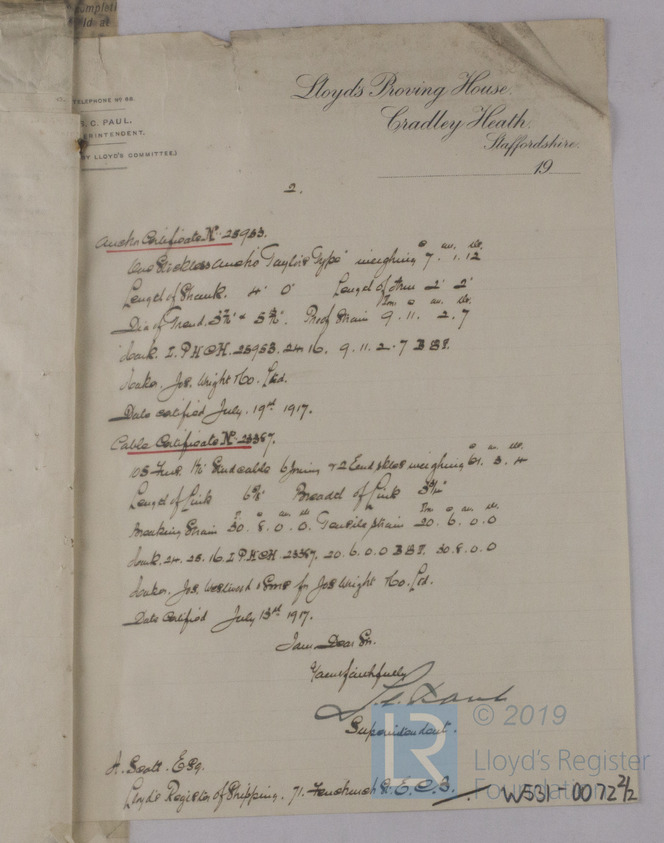 omplet
ld at
TELEPHONE No 68.
C. PAUL,
RINTENDENT.
BY LLOYD'S COMMITTEE.)
Lloyd's Proving House,
Cradley Heath,
Staffordshire.
19
2.
Certificate No 25953.
One Stockless Ancho "Taylors Type" weighing 7. 1. 12
Length of Shank. 4' 0" Length of Arm 2' 2"
Dia of Trend. Proof Strain 9. 11. 2. 7
L.P.H.C.H. 25953. 24. 16. 9. 11. 2. 7 B.B.
Jos. Wright & Co. Ltd.
Date certified July. 19th 1917.
Cable Certificate No 23367.
Stud cable 6 Joining & 2 End weighing 61. 3. 4
Length of Link 6 Breadth of Link
Breaking Strain 30. 8. 0. 0. Tensile Strain 20. 6. 0. 0
24. 25. 16. L.P.H.C.H. 23367. 20. 6. 0. 0 30. 8. 0. 0
Jos. Westwood & Sons for Jos Wright & Co. Ltd.
Date certified July 13th 1917.
I am Dear Sir.
Yours faithfully
Superintendent.
A. Scott. Esq.
Lloyds Register of Shipping. 71. Fenchurch St. E.C.3.
W531-0072 2/2
LR
© 2019
Lloyd's Register
Foundation